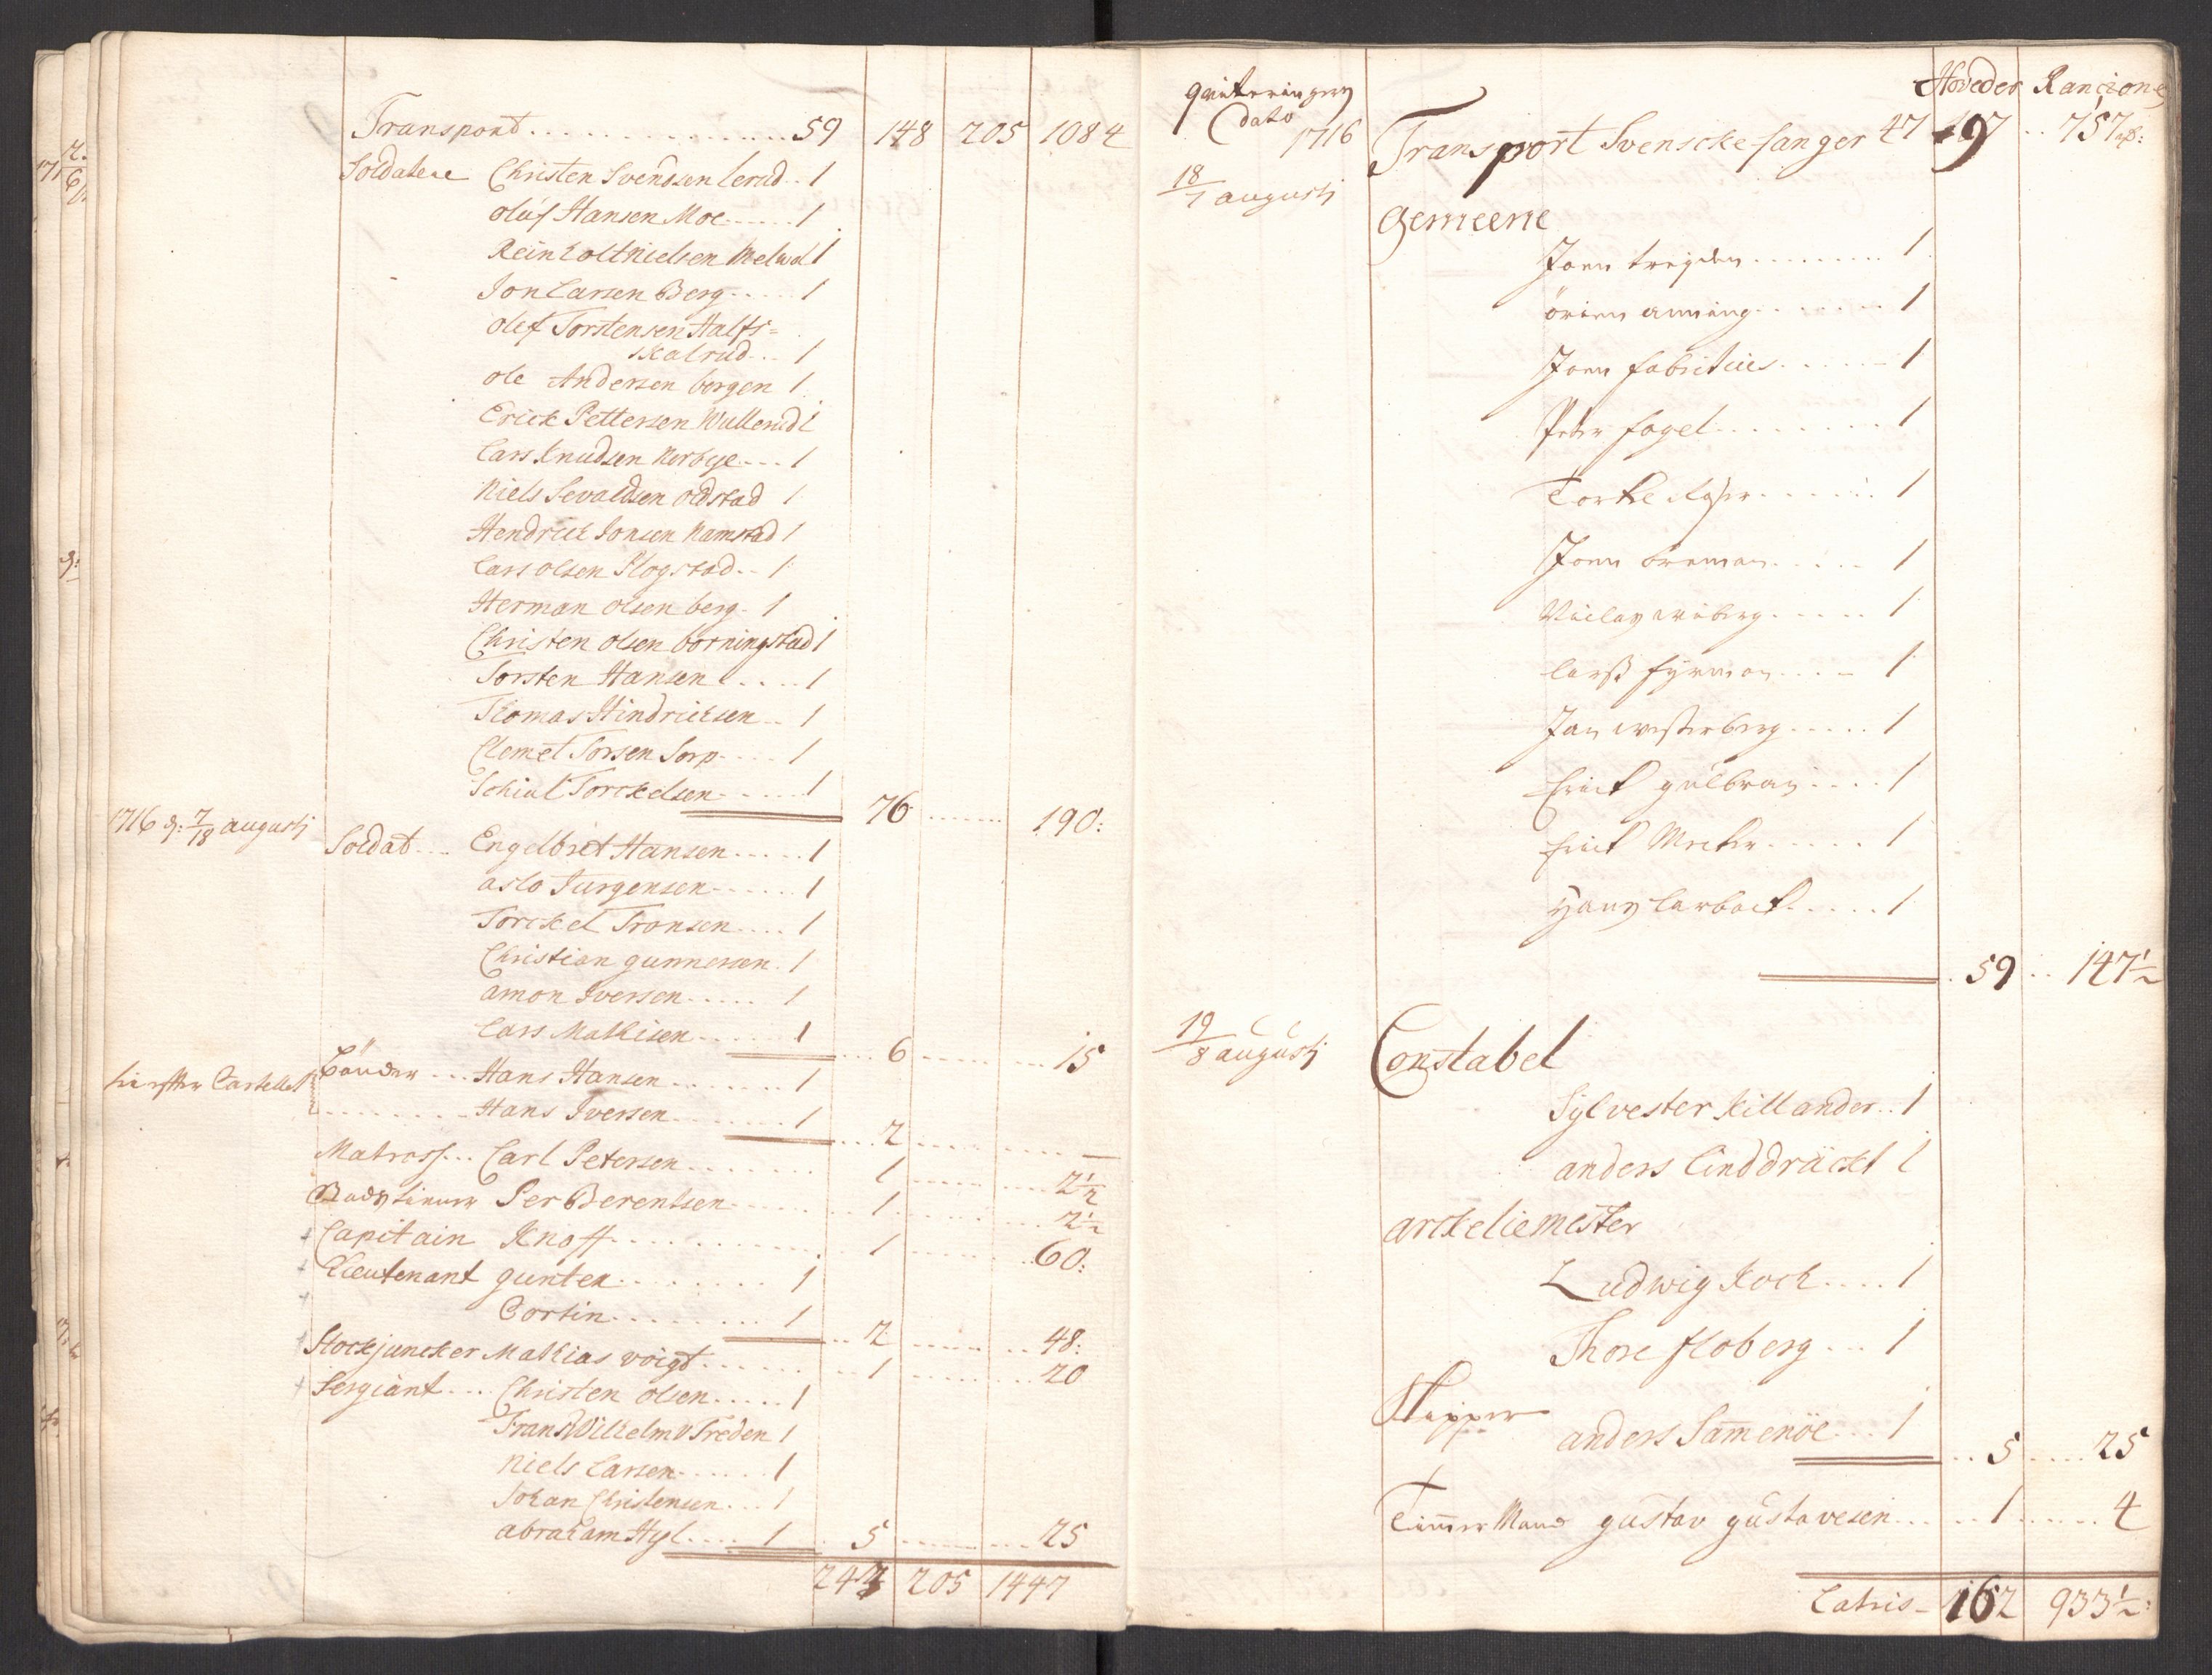 Transport . . . 59 148 205 1084
Soldatene Christen Svendsen lerud . . 1
oluf Hansen Moe . . . 1
Reinholt Nielsen Melwol 1
Jon Larsen Berg . . . 1
olef Torstensen Halfs=
skalrud . . 1
ole Andersen borgen 1
Erick Pettersen Wullerud 1
Lars Knudsen Nerbye . . . 1
Niels Sevaldsen oldstad 1
Hendrick Jonsen Namstad 1
Lars olsen Slogstad . . 1
Herman olsen berg . 1
Christen olsen borningstad 1
Torsten Hansen . . . . 1
Thomas Hindrichsen . . 1
Clemet Torsen Sorp . . . 1
Schiul Torckelsen . . . 1
76 . . . 190:
1716 d: 7/18 augustj
Soldat . . . Engelbret Hansen . . . . 1
aslo Jurgensen . . . 1
Torckel Tronsen . . . . 1
Christian gunnersen . 1
amon Iversen . . . . 1
Lars Mathisen . . . 1
6 . . . 15
Bönder . . . Hans Hansen . . . 1
Hans Iversen . . . 1
2 . . . —
Matross . . . Carl Petersen . . . 1 . . . 2½
Per Berentsen . . . 1 . . . 2½
Capitain Knoff . . . 1 . . . 60:
Lieutenant gunter . . . 1
Cortin . . . 1
2 . . . 48:
Stockjuncker Mathias voigt . . . 1 . . . 20
Sergiant . . . Christen olsen . . . 1
Frans Wilhelm v Treden 1
Niels Larsen . . . 1
Johan Christensen . . . 1
abraham Hyl . . . 1 5 . . . 25
243 205 1447
qviteringens
dato
1716
Hoveder Rancion
Transport Svenscke fanger 47 197 . . 757
18/7 augustj
gemeene
Joen . . . 1
anning . . . 1
Joen fabritius . . . 1
Peter fogel . . . 1
Torkel . . . 1
Joen broman . . . 1
wiberg . . . 1
larss fyrman . . . 1
Jan westerberg . . . 1
Erick gulbran . . . 1
Erick Mecker . . . 1
Hans Carback . . . 1
59 . . 147½
19/8 augustj
Constabel
Sylvester Killander . . 1
anders Linddräckt 1
arckeliemester
Ludwig Koch . . . 1
Thore floberg . . . 1
Skipper
anders Samenöe . . . 1
5 . . . 25
Timmer Mand gustav gustavesen . . . 1 . . . 4
Latris - 162 933½: